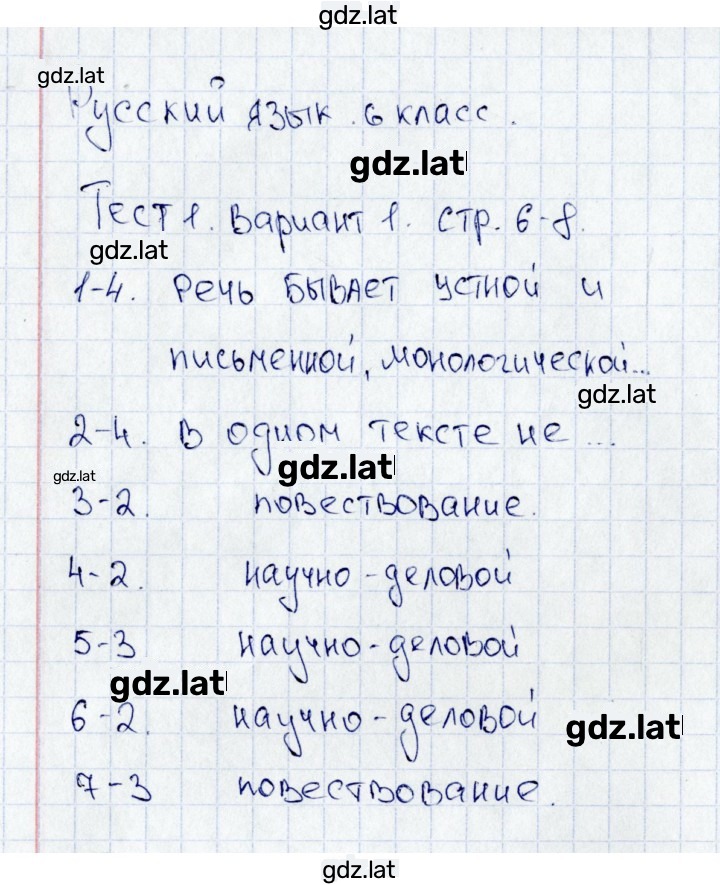 gdz.lat
gdz.lat
Русский язык. 6 класс.
gdz.lat
Тест 1. Вариант 1. стр. 6-8.
gdz.lat
1-4. Речь бывает устной и
письменной, монологической...
gdz.lat
2-4. В одном тексте не ...
gdz.lat
gdz.lat
3-2. повествование.
4-2. научно-деловой
5-3 научно-деловой
gdz.lat
6-2. научно-деловой
gdz.lat
7-3 повествование.
gdz.lat